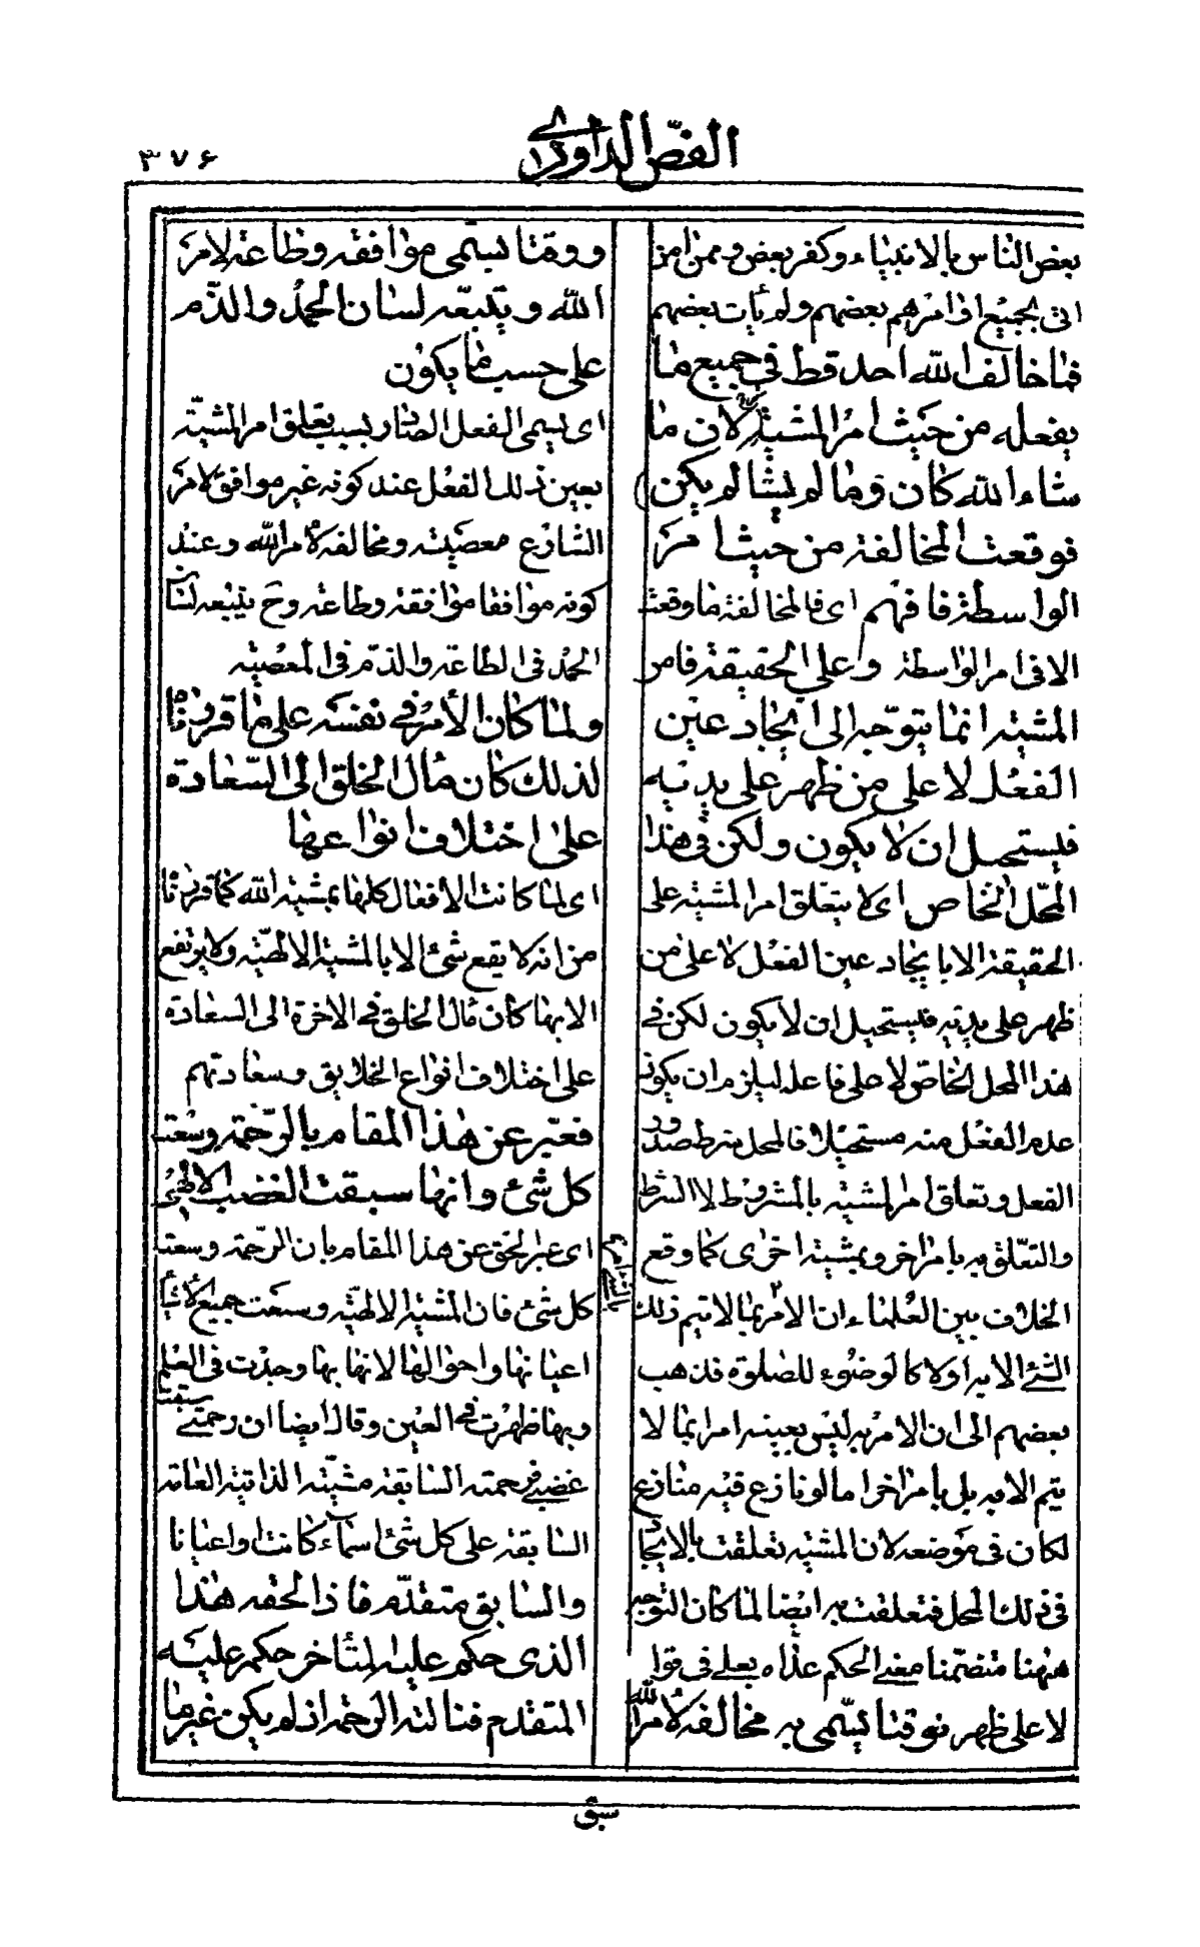 الفصّ الداودی
۳۷۶
بعض الناس بالانبياء وكفر بعض وممن امن
اتى بجميع اوامرهم بعضهم ولم يأت بعضهم
فما خالف الله احد قط في جميع ما
يفعله من حيث امر المشية لان ما
شاء الله كان وما لم يشا لم يكن
فوقعت المخالفة من حيث امر
الواسطة فافهم اى فالمخالفة ما وقعت
الا فى امر الواسطة وعلي الحقيقة فامر
المشيّه انما يتوّجه الى ايجاد عين
الفعل لا على من ظهر على يديه
فيستحيل ان لا يكون ولكن فى هذا
المحّل الخاص اى لا يتعّلق امر المشيّه على
الحقيقة الا بايجاد عين الفعل لا على من
ظهر على يديه فيستحيل ان لا يكون لكن فى
هذا المحل الخاصّ لا على فاعله ليلزم ان يكون
عدم الفعل منه مستحيلا فالمحل شرط صدور
الفعل وتعلق امر المشيّه بالمشروط لا الشرط
والتعّلق به بامر اخر وبمشيّه اخرى كما وقع
الخلاف بين العلماء ان الامر بما لا يتم ذلك
الشئ الا به اولا كالوضوء للصلوة فذهب
بعضهم الى ان الامر به ليس بعينه امرا بما لا
يتم الا به بل بامر اخر اما لو نازع فيه منازع
لكان فى موضعه لان المشيّه تعلقت بالايجاد
فى ذلك المحل فتعلقت به ايضا لما كان التوجه
ههنا متضمنا معنى الحكم عدّاه بعلى فى قوله
لا على ظهر فوقتا يسّمى به مخالفه لامر الله
ووقتا يسمى موافقه وطاعة لامر
الله ويتبعّه لسان الحمد والذّم
على حسب ما يكون
اى يسمى الفعل الصادر بسبب تعلق امر المشيّة
بعين ذلك الفعل عند كونه غير موافق لامر
الشارع معصيته ومخالفه لامر الله وعند
كونه موافقا موافقه وطاعه وح يتبعه لسان
الحمد فى الطاعه والذمّ فى المعصيّه
ولما كان الأمر في نفسه على ما قررناه
لذلك كان مال الخلق الى السّعادة
على اختلاف انواعها
اى لما كانت الافعال كلها بمشيّه الله كما قررنا
من انه لا يقع شئ الا بالمشية الالهيّه ولا يرتفع
الا بها كان مال الخلق فى الاخرة الى السعادة
على اختلاف انواع الخلايق وسعادتهم
فعبّر عن هذا المقام بالرّحمة وسعت
كل شئ وانها سبقت الغضب الالهى
اى عبر الحق عن هذا المقام بان الرّحمة وسعت
كل شئ فان المشية الالهيّه وسعت جميع الاشيا
اعيانها واحوالها لانها بها وجدت فى العلم
وبها ظهرت فى العين وقال ايضا ان رحمتى سبقت
غضبى فرحمته السابقه مشيّته الذاتية العامه
السابقه على كل شئ اسمآء كانت او اعيانا
والسابق متقدّم فاذا لحقه هذا
الذى حكم عليه المتأخر حكم عليه
المتقدم فنالته الرحمة اذ لم يكن غيرها
سبق